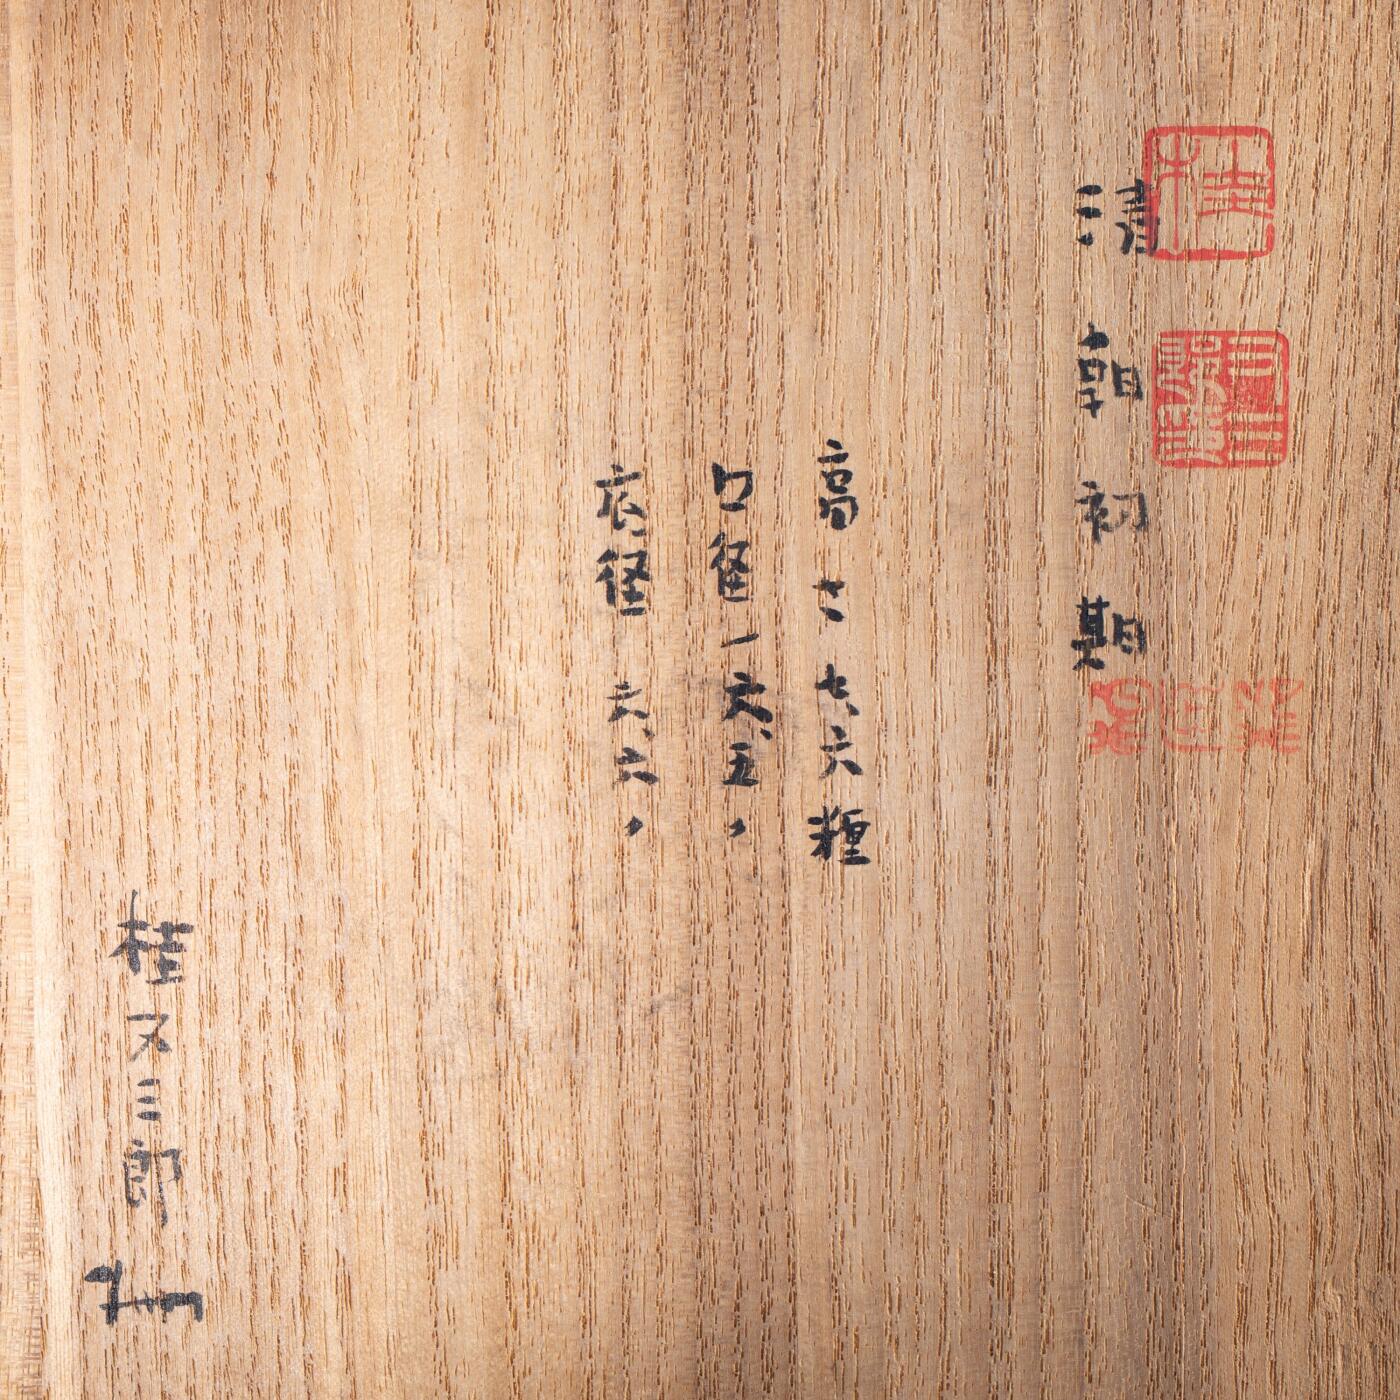 桂
清朝初期
高サ七、六糎
口径一六、五〃
底径六、六〃
桂又三郎